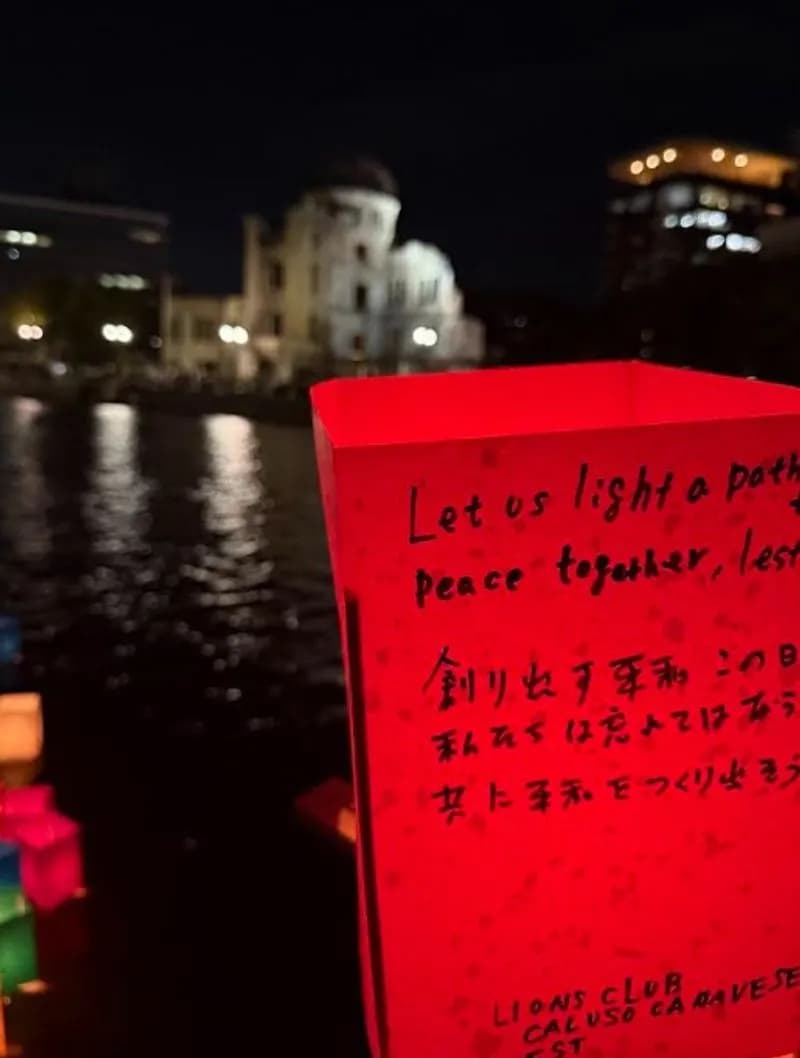 Let us light a path
peace together, lest
創り出す平和 この日
私たちは忘れてはなら
共に平和をつくり出そう
LIONS CLUB
CALUSO CANAVESE
EST